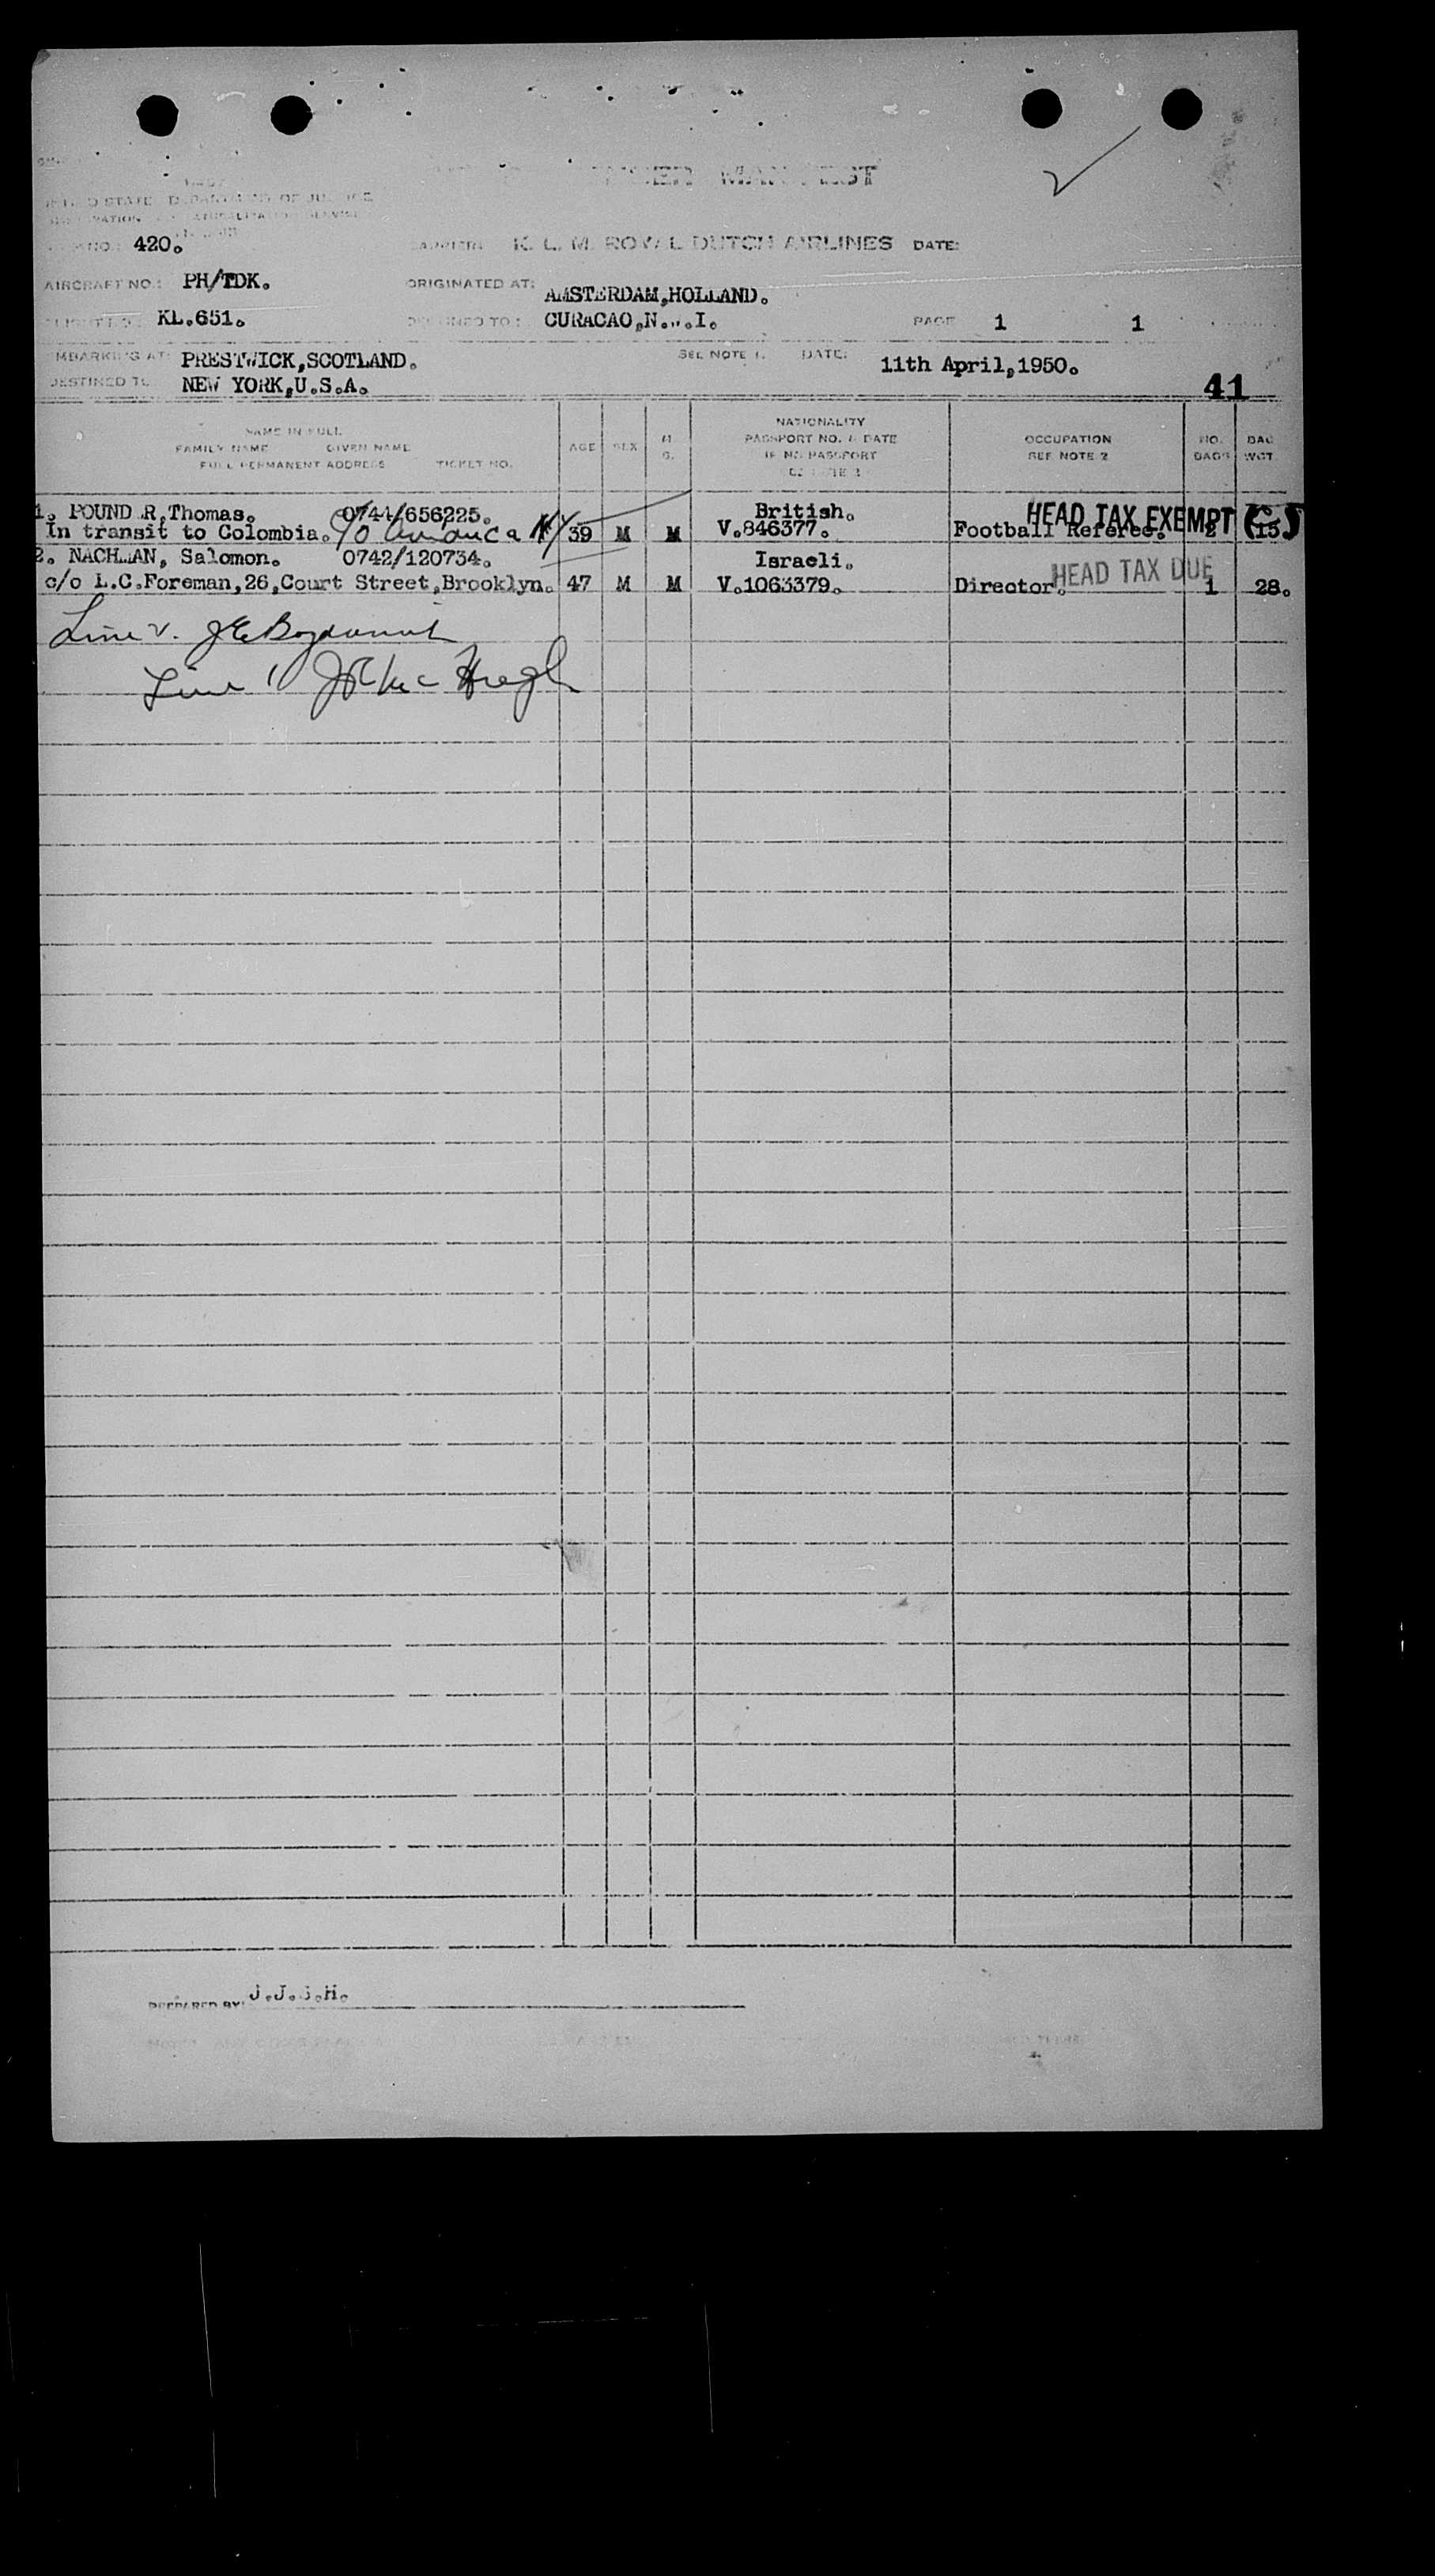 MANIFEST
UNITED STATES DEPARTMENT OF JUSTICE
420.
CARRIER: K. L. M. ROYAL DUTCH AIRLINES DATE:
AIRCRAFT NO.: PH/TDK. ORIGINATED AT: AMSTERDAM,HOLLAND.
KL.651. DESTINED TO: CURACAO,N.W.I. PAGE 1 1
EMBARKING AT: PRESTWICK,SCOTLAND. SEE NOTE 1. DATE: 11th April,1950.
DESTINED TO NEW YORK,U.S.A. 41
NAME IN FULL
FAMILY NAME GIVEN NAME
FULL PERMANENT ADDRESS TICKET NO.
AGE SEX
NATIONALITY
PASSPORT NO. & DATE
IF NO PASSPORT
OCCUPATION
REF NOTE 2
NO.
BAGS
BAG
WGT.
1. POUND R,Thomas. 0744/656225. British. HEAD TAX EXEMPT
In transit to Colombia. 39 M M V.846377. Football Referee. 2 15
2. NACHMAN, Salomon. 0742/120734. Israeli. HEAD TAX DUE
c/o L.C.Foreman,26,Court Street,Brooklyn. 47 M M V.1063379. Director. 1 28.
Line 2.
Line 1
PREPARED BY: J.J.